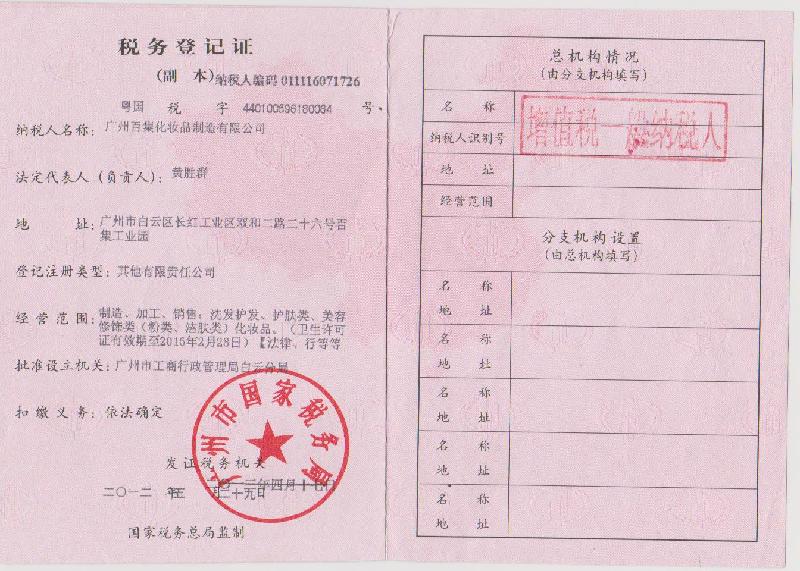 税务登记证
(副 本) 纳税人编码 011116071726
粤国 税 字 440100696180034 号
纳税人名称：广州百集化妆品制造有限公司
法定代表人（负责人）：黄胜群
地 址：广州市白云区长红工业区双和二路二十六号百
集工业园
登记注册类型：其他有限责任公司
经营范围：制造、加工、销售：洗发护发、护肤类、美容
修饰类（粉类、洁肤类）化妆品。（卫生许可
证有效期至2015年2月28日）【法律、行等等
批准设立机关：广州市工商行政管理局白云分局
扣缴义务：依法确定
广州市国家税务局
发证税务机关
二〇一二 年五 二十九日
国家税务总局监制
总机构情况
(由分支机构填写)
名 称
增值税一般纳税人
纳税人识别号
地 址
经营范围
分支机构设置
(由总机构填写)
名 称
地 址
名 称
地 址
名 称
地 址
名 称
地 址
名 称
地 址